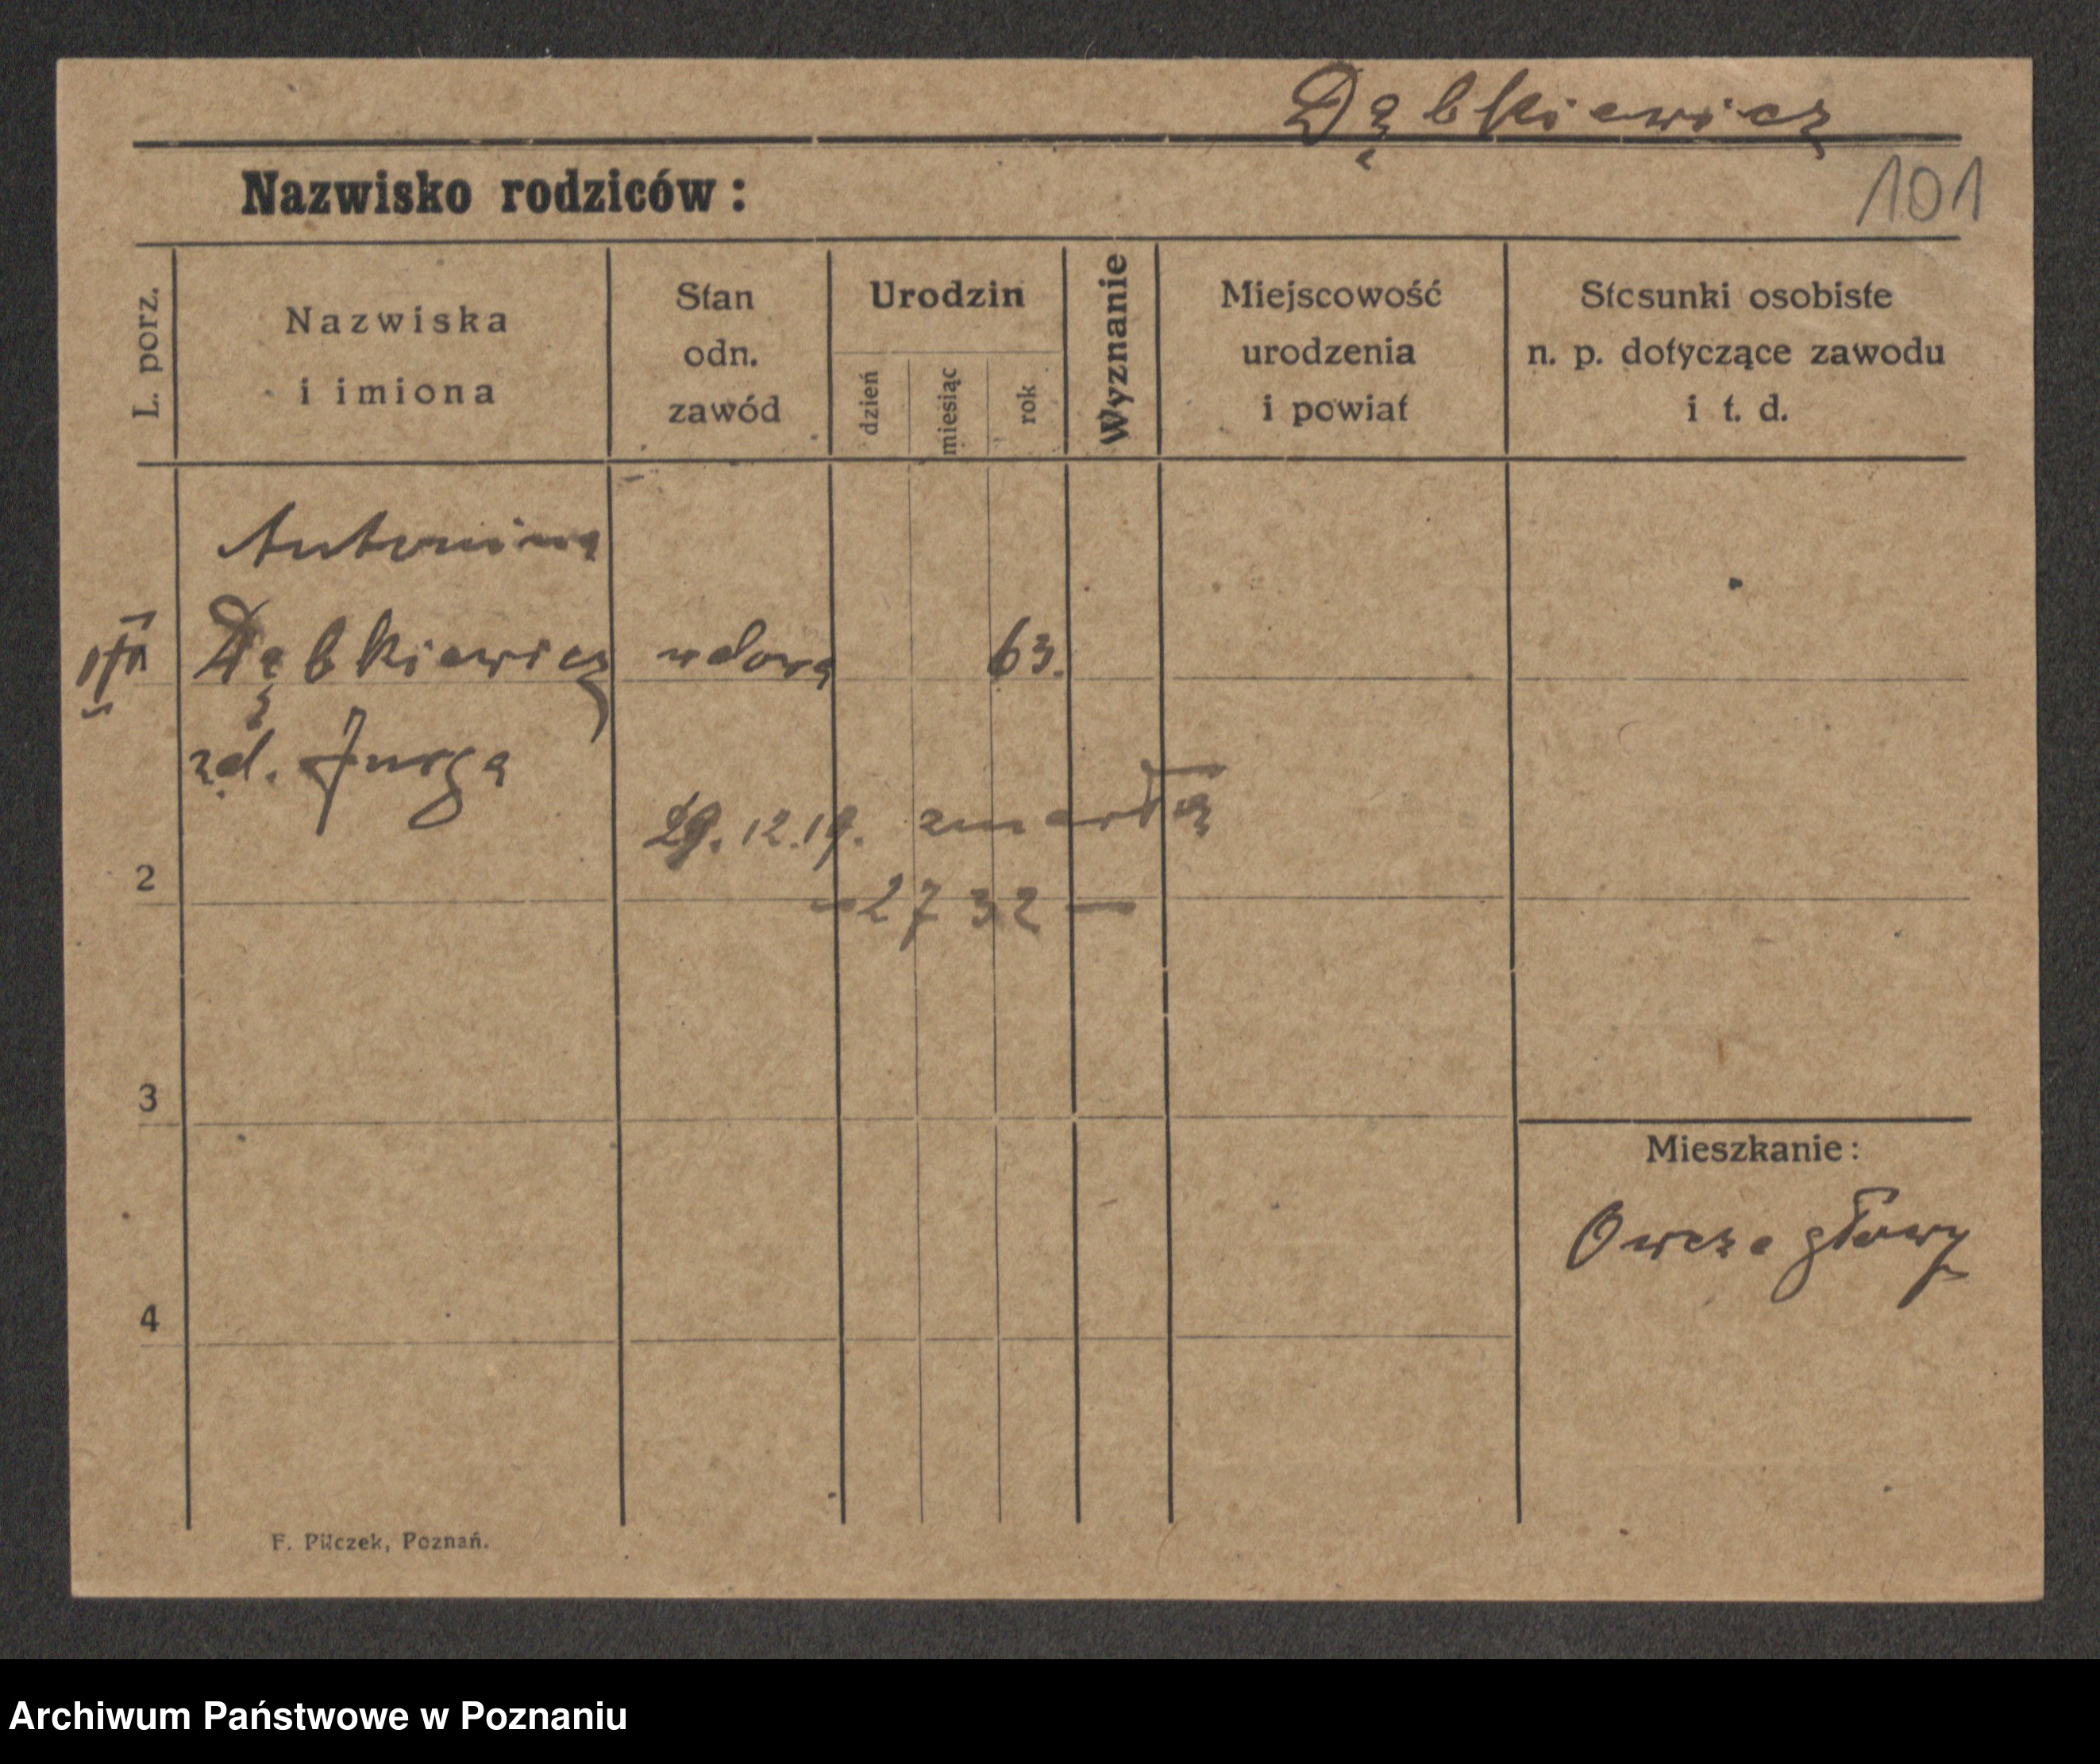 Dąbkiewicz
Nazwisko rodziców:
101
L. porz.
Nazwiska
i imiona
Stan
odn.
zawód
Urodzin
dzień
miesiąc
rok
Wyznanie
Miejscowość
urodzenia
i powiat
Stosunki osobiste
n. p. dotyczące zawodu
i t. d.
Antonina
Dąbkiewicz
wdowa
63.
zd. Jurga
29.12.19. zmarła
- 2732 -
2
3
4
Mieszkanie:
Owcze głowy
F. Pilczek, Poznań.
Archiwum Państwowe w Poznaniu